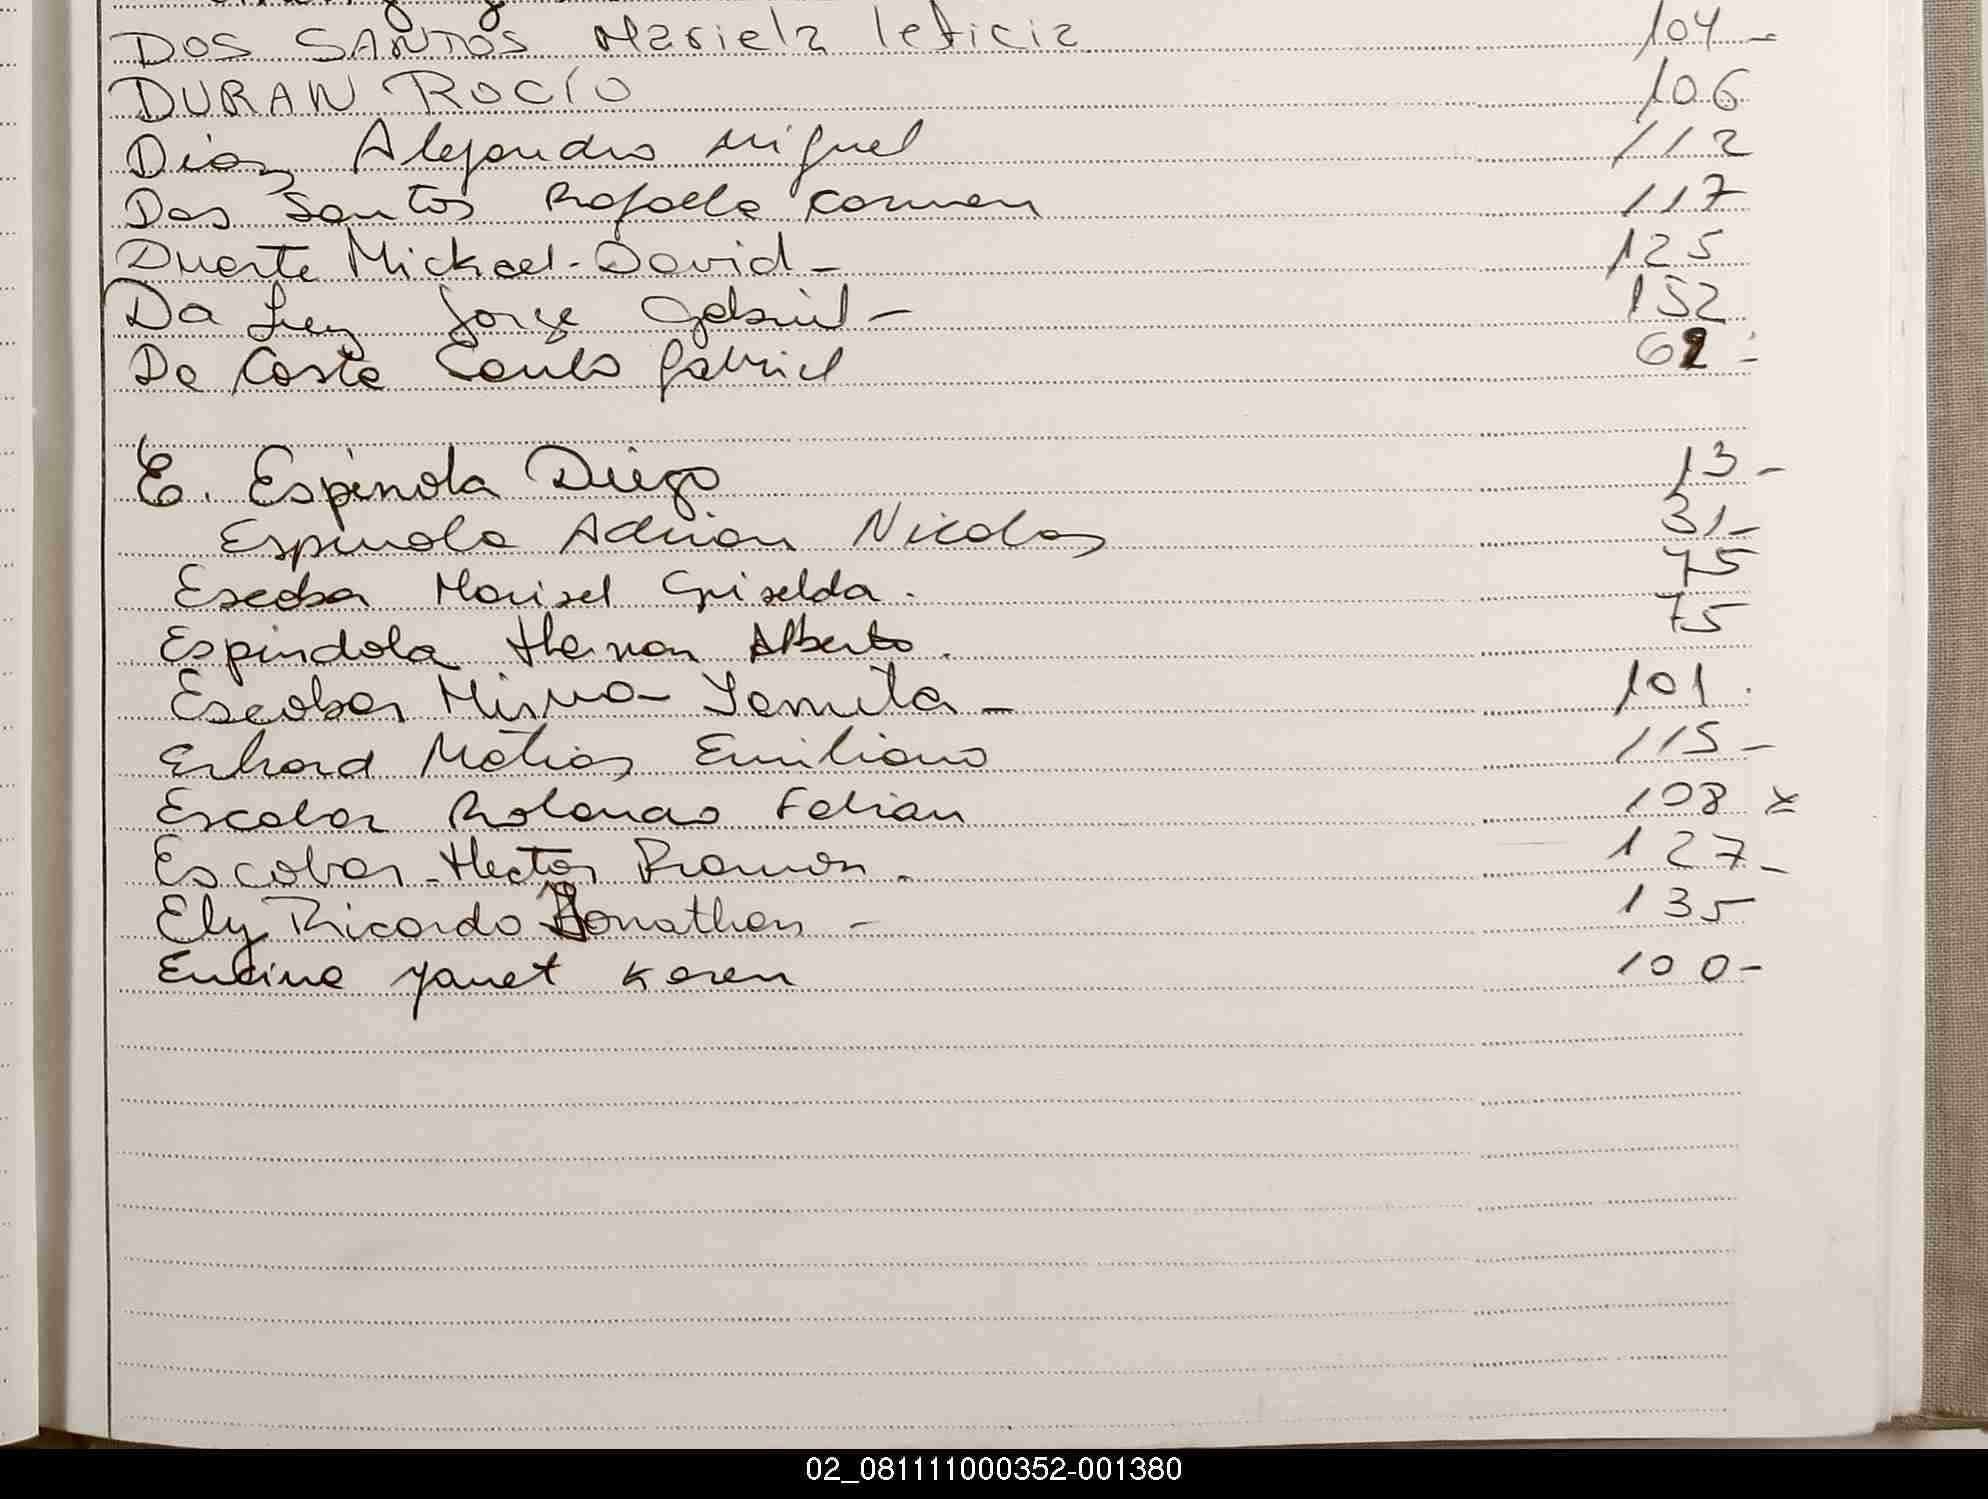 DOS SANTOS Mariela leticia 104 -
DURAN ROCÍO 106
Diaz Alejandro Miguel 112
Dos Santos Rafaela Carmen 117
Duarte Mickael - David - 125
Da Luz Jorge Gabriel - 152
Da Costa Camilo Gabriel 62 -
E. Espinola Diego 13 -
Espinola Adrian Nicolas 31 -
Escobar Marisel Griselda . 75
Espindola Hernan Alberto . 75
Escobar Mirna - Yamila - 101 .
Erhard Matias Emiliano 115 -
Escobar Rolando Fabian 108 x
Escobar - Hector Ramon . 127 -
Ely Ricardo Jonathan - 135
Encina Yanet Karen 100 -
02_081111000352-001380